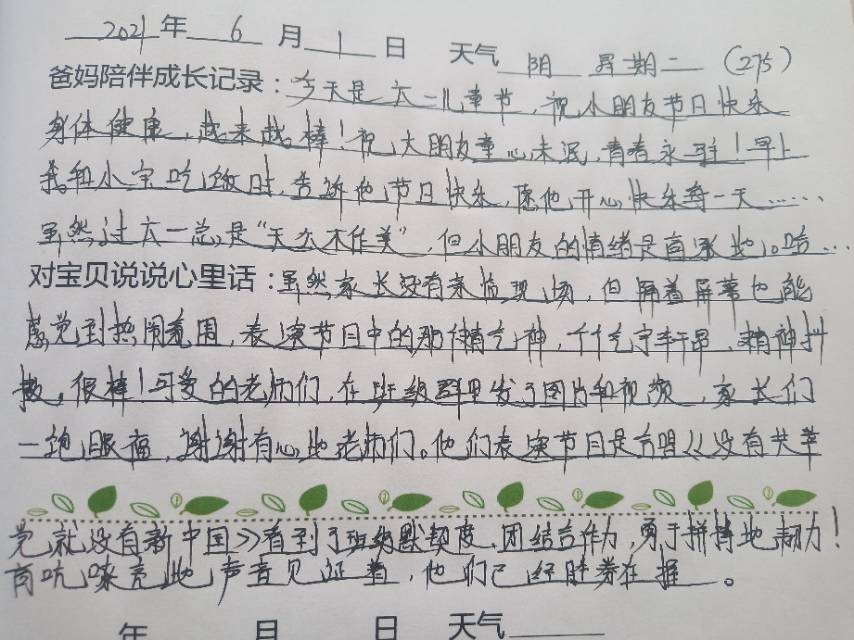 2021年 6 月 1 日 天气 阴 星期二 (275)
爸妈陪伴成长记录：今天是六一儿童节，祝小朋友节日快乐
身体健康，越来越棒！祝大朋友童心未泯，青春永驻！早上
我和小宝吃饭时，告诉他节日快乐，愿他开心快乐每一天……
虽然过六一总是“天公不作美”，但小朋友的情绪是高涨地。哈…
对宝贝说说心里话：虽然家长没有亲临现场，但隔着屏幕也能
感觉到热闹氛围，表演节目中的那份精气神，个个气宇轩昂，精神抖
擞。很棒！可爱的老师们，在班级群里发了图片和视频，家长们
一饱眼福，谢谢有心地老师们。他们表演节目是合唱《没有共产
党就没有新中国》看到了班级默契度，团结合作力，勇于拼搏地毅力！
高吭嘹亮地声音见证着，他们已经胜券在握。
年 月 日 天气